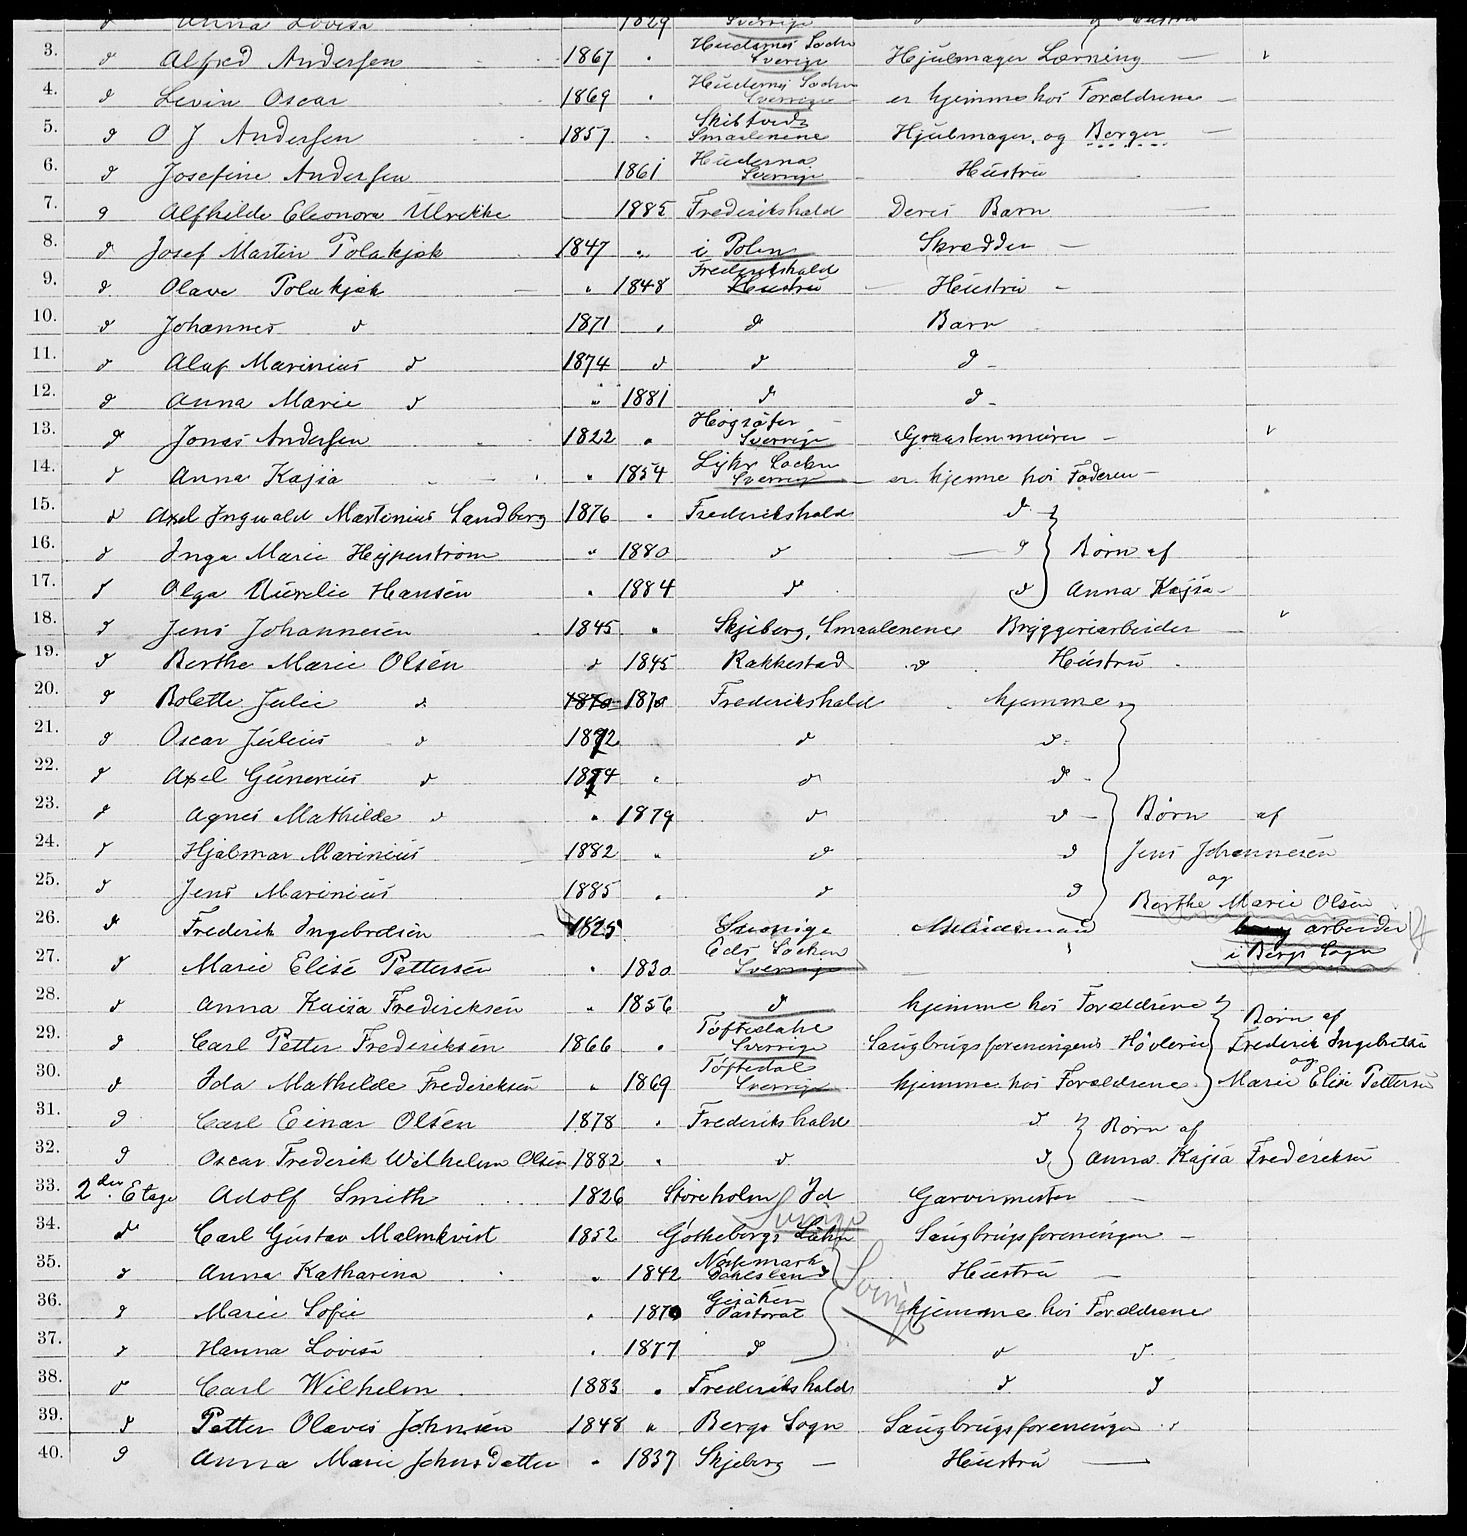 d Anna Lovisa 1829 Sverrige
3. d Alfred Andersen 1867 " Sverige Hjulmager Lærning
4. d Levin Oscar 1869 " Sverrige er hjemme hos Forældrene
5. d O J Andersen 1857 " Skibtveds Smaalenene Hjulmager og Borger
6. d Josefine Andersen 1861 Huderna Sverrige Hustru
7. d Alfhilde Eleonora Ulrikke 1885 Frederikshald Deres Barn
8. d Josef Martin Polakjak 1847 " i Polen Skrædder
9. d Olava Polakjak " 1848 Frederikshald Hustru
10. d Johannes d 1871 " d Barn
11. d Alaf Marinius d 1874 d d d
12. d Anna Marie d " 1881 d d
13. d Jonas Andersen 1822 " Høgsäter Sverrige Graastensmurer
14. d Anna Kajsa " 1854 Sverrige er hjemme hos Faderen
15. d Axel Ingwald Martinius Sandberg 1876 " Frederikshald d
16. d Inga Marie Hejperström " 1880 d d Børn af
17. d Olga Aurelie Hansen " 1884 d d Anna Kajsa
18. d Jens Johannesen 1845 " Skjeberg, Smaalenene Bryggeriarbeider
19. d Berthe Marie Olsen d 1845 Rakkestad d Hustru
20. d Bolette Julie d 1870 1870 Frederikshald hjemme
21. d Oscar Julius d 1872 d d
22. d Axel Gunerius d 1874 " d d
23. d Agnes Mathilde d " 1879 d d Børn af
24. d Hjalmar Marinius 1882 " d d Jens Johannesen
25. d Jens Marinius 1885 " d d og Berthe Marie Olsen
26. d Frederik Ingebretsen 1825 Sverrige arbeider
27. d Marie Elise Pettersen " 1830 Eds Socken Sverrige i Bergs Sogn
28. d Anna Kaisa Frederiksen " 1856 d hjemme hos Forældrene Børn af
29. d Carl Petter Frederiksen 1866 " Töftedahl Sverrige Saugbrugsforeningens Høvleri Frederik Ingebretsen
30. d Ida Mathilde Frederiksen " 1869 Töftedal Sverrige hjemme hos Forældrene og Marie Elise Pettersen
31. d Carl Einar Olsen 1878 " Frederikshald d Børn af
32. d Oscar Frederik Wilhelm Olsen 1882 " d d Anna Kajsa Frederiksen
33. 2den Etage Adolf Smith 1826 Id Garvermester
34. d Carl Gustav Malmkvist 1852 Sverige Götheborgs Lähn Saugbrugsforeningen
35. d Anna Katharina " 1842 Nössemark Dahlsland Sverige Hustru
36. d Marie Sofie " 1870 Pastorat hjemme hos Forældrene
37. d Hanna Lovisa " 1877 d d d
38. d Carl Wilhelm 1883 " Frederikshald d d
39. d Petter Olaves Johnsen 1848 " Bergs Sogn Saugbrugsforeningen
40. d Anna Marie Johnsdatter " 1837 Skjeberg Hustru